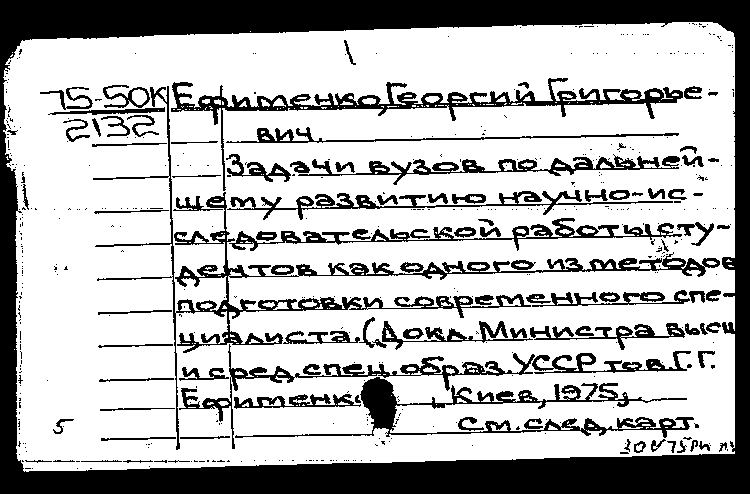 75-50К Ефименко, Георгий Григорье-
2132 вич.
Задачи вузов по дальней-
шему развитию научно-ис-
следовательской работы сту-
дентов как одного из методов
подготовки современного спе-
циалиста. (Докл. Министра высш
и сред. спец. образ. УССР тов. Г. Г.
Ефименк Киев, 1975,
5 См. след. карт.